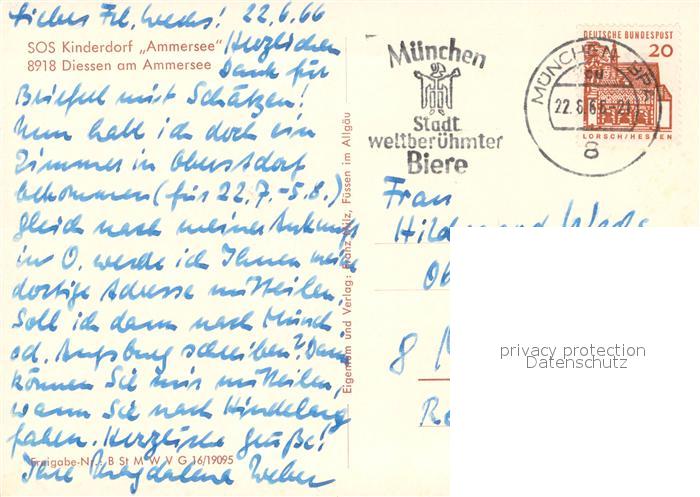 Liebes Frl. Wechs! 22.6.66
SOS Kinderdorf „Ammersee"
8918 Diessen am Ammersee
Herzlichen
Dank für
Brieferl mit Schätzen!
Nun hab ich doch ein
Zimmer in Oberstdorf
bekommen (für 22.7.-5.8.)
gleich nach meiner Ankunft
in O. werde ich Ihnen meine
dortige Adresse mitteilen
Soll ich dann nach Münch
od. Augsburg schreiben? Dann
können Sie mir mitteilen,
wann Sie nach Hindelang
fahren. Herzliche Grüße!
Ihre Magdalena Weber
Freigabe-Nr.: B St M W V G 16/19095
Eigentum und Verlag: Franz Milz, Füssen im Allgäu
München
Stadt
weltberühmter
Biere
MÜNCHEN BPA
22.6.66-21
8
DEUTSCHE BUNDESPOST
20
LORSCH/HESSEN
Frau
8 M
privacy protection
Datenschutz